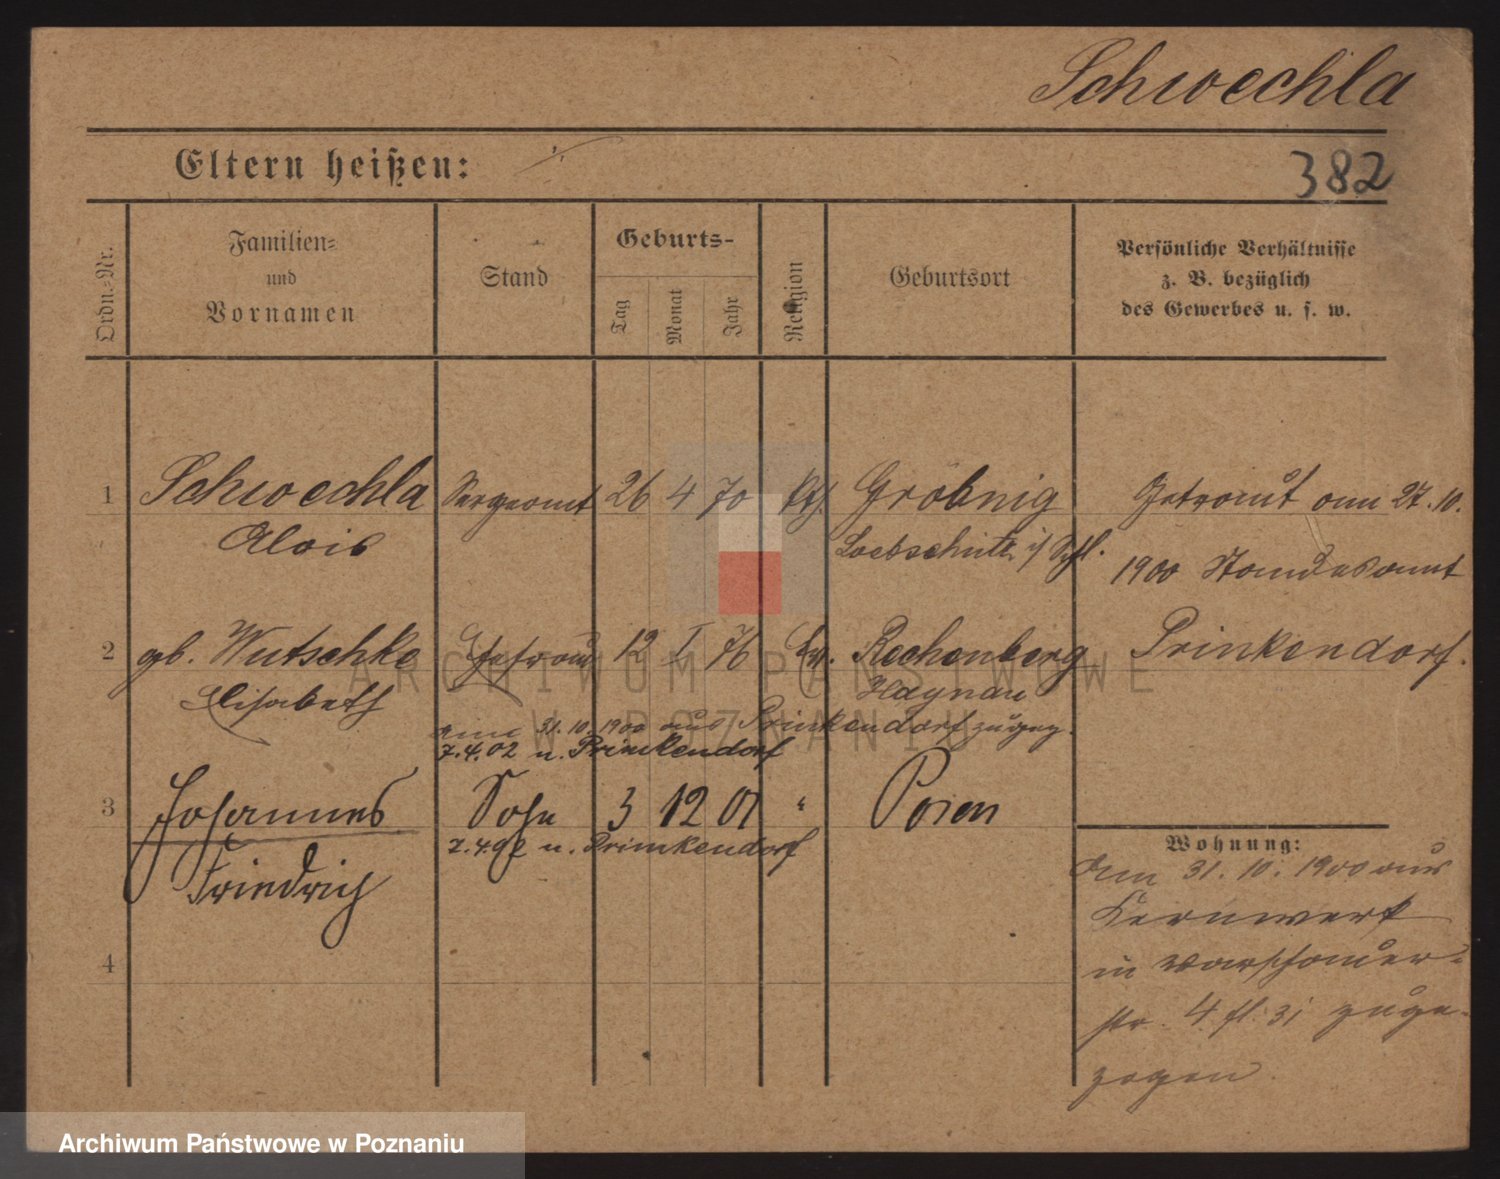 Schwechla
Eltern heißen:
382
Ordn.-Nr.
Familien-
und
Vornamen
Stand
Geburts-
Tag
Monat
Jahr
Religion
Geburtsort
Persönliche Verhältnisse
z. B. bezüglich
des Gewerbes u. s. w.
1
Schwechla
Alois
Sergeant
26
4
70
kth.
Gröbnig
Leobschütz i/ Schl.
Getraut am 27.10.
1900 Standesamt
Prinkendorf.
2
gb. Wutschke
Elisabeth
Ehefrau
12
I
76
Ev.
Rechenberg
Haynau
31.10.1900 aus Prinkendorf zugez.
7.4.02 n. Prinkendorf
3
Johannes
Friedrich
Sohn
3
12
01
"
Posen
7.4.02 n. Prinkendorf
4
Wohnung:
Am 31.10.1900 aus
Kernwerk
in Warschauer-
str. 4 zuge-
zogen.
ARCHIWUM PAŃSTWOWE
W POZNANIU
Archiwum Państwowe w Poznaniu